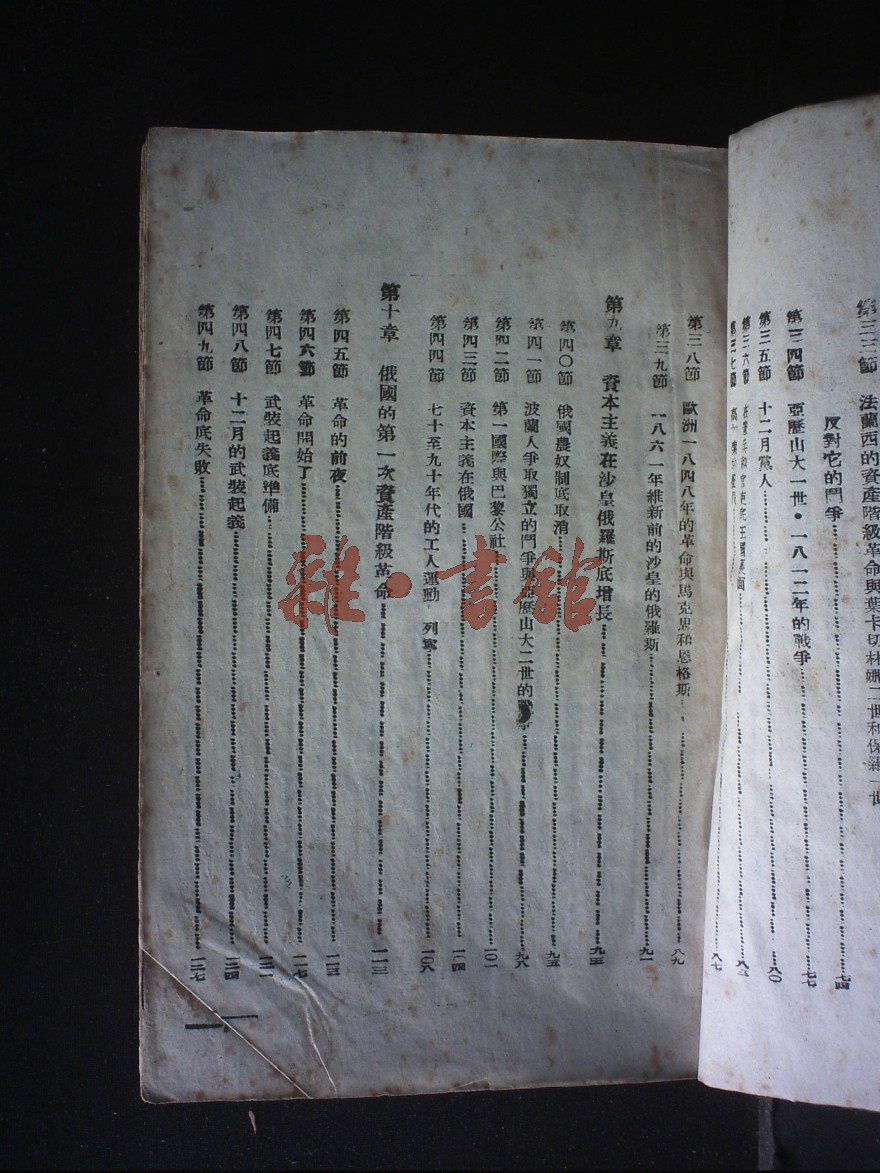 第三三節 法蘭西的資產階級革命與葉卡切林娜二世和保羅一世
反對它的鬥爭 七四
第三四節 亞歷山大一世・一八一二年的戰爭 七七
第三五節 十二月黨人 八〇
第三六節 在憲兵和官吏底王國裏面 八三
第三七節 高加索 八七
第三八節 歐洲一八四八年的革命與馬克思和恩格斯 八九
第三九節 一八六一年維新前的沙皇的俄羅斯 九一
第九章 資本主義在沙皇俄羅斯底增長 九五
第四〇節 俄國農奴制底取消 九五
第四一節 波蘭人爭取獨立的鬥爭與亞歷山大二世的戰爭 九八
第四二節 第一國際與巴黎公社 一〇一
第四三節 資本主義在俄國 一〇四
第四四節 七十至九十年代的工人運動 列寧 一〇八
第十章 俄國的第一次資產階級革命 一一三
第四五節 革命的前夜 一一三
第四六節 革命開始了 一一七
第四七節 武裝起義底準備 一二一
第四八節 十二月的武裝起義 一二四
第四九節 革命底失敗 一二七
雜・書館